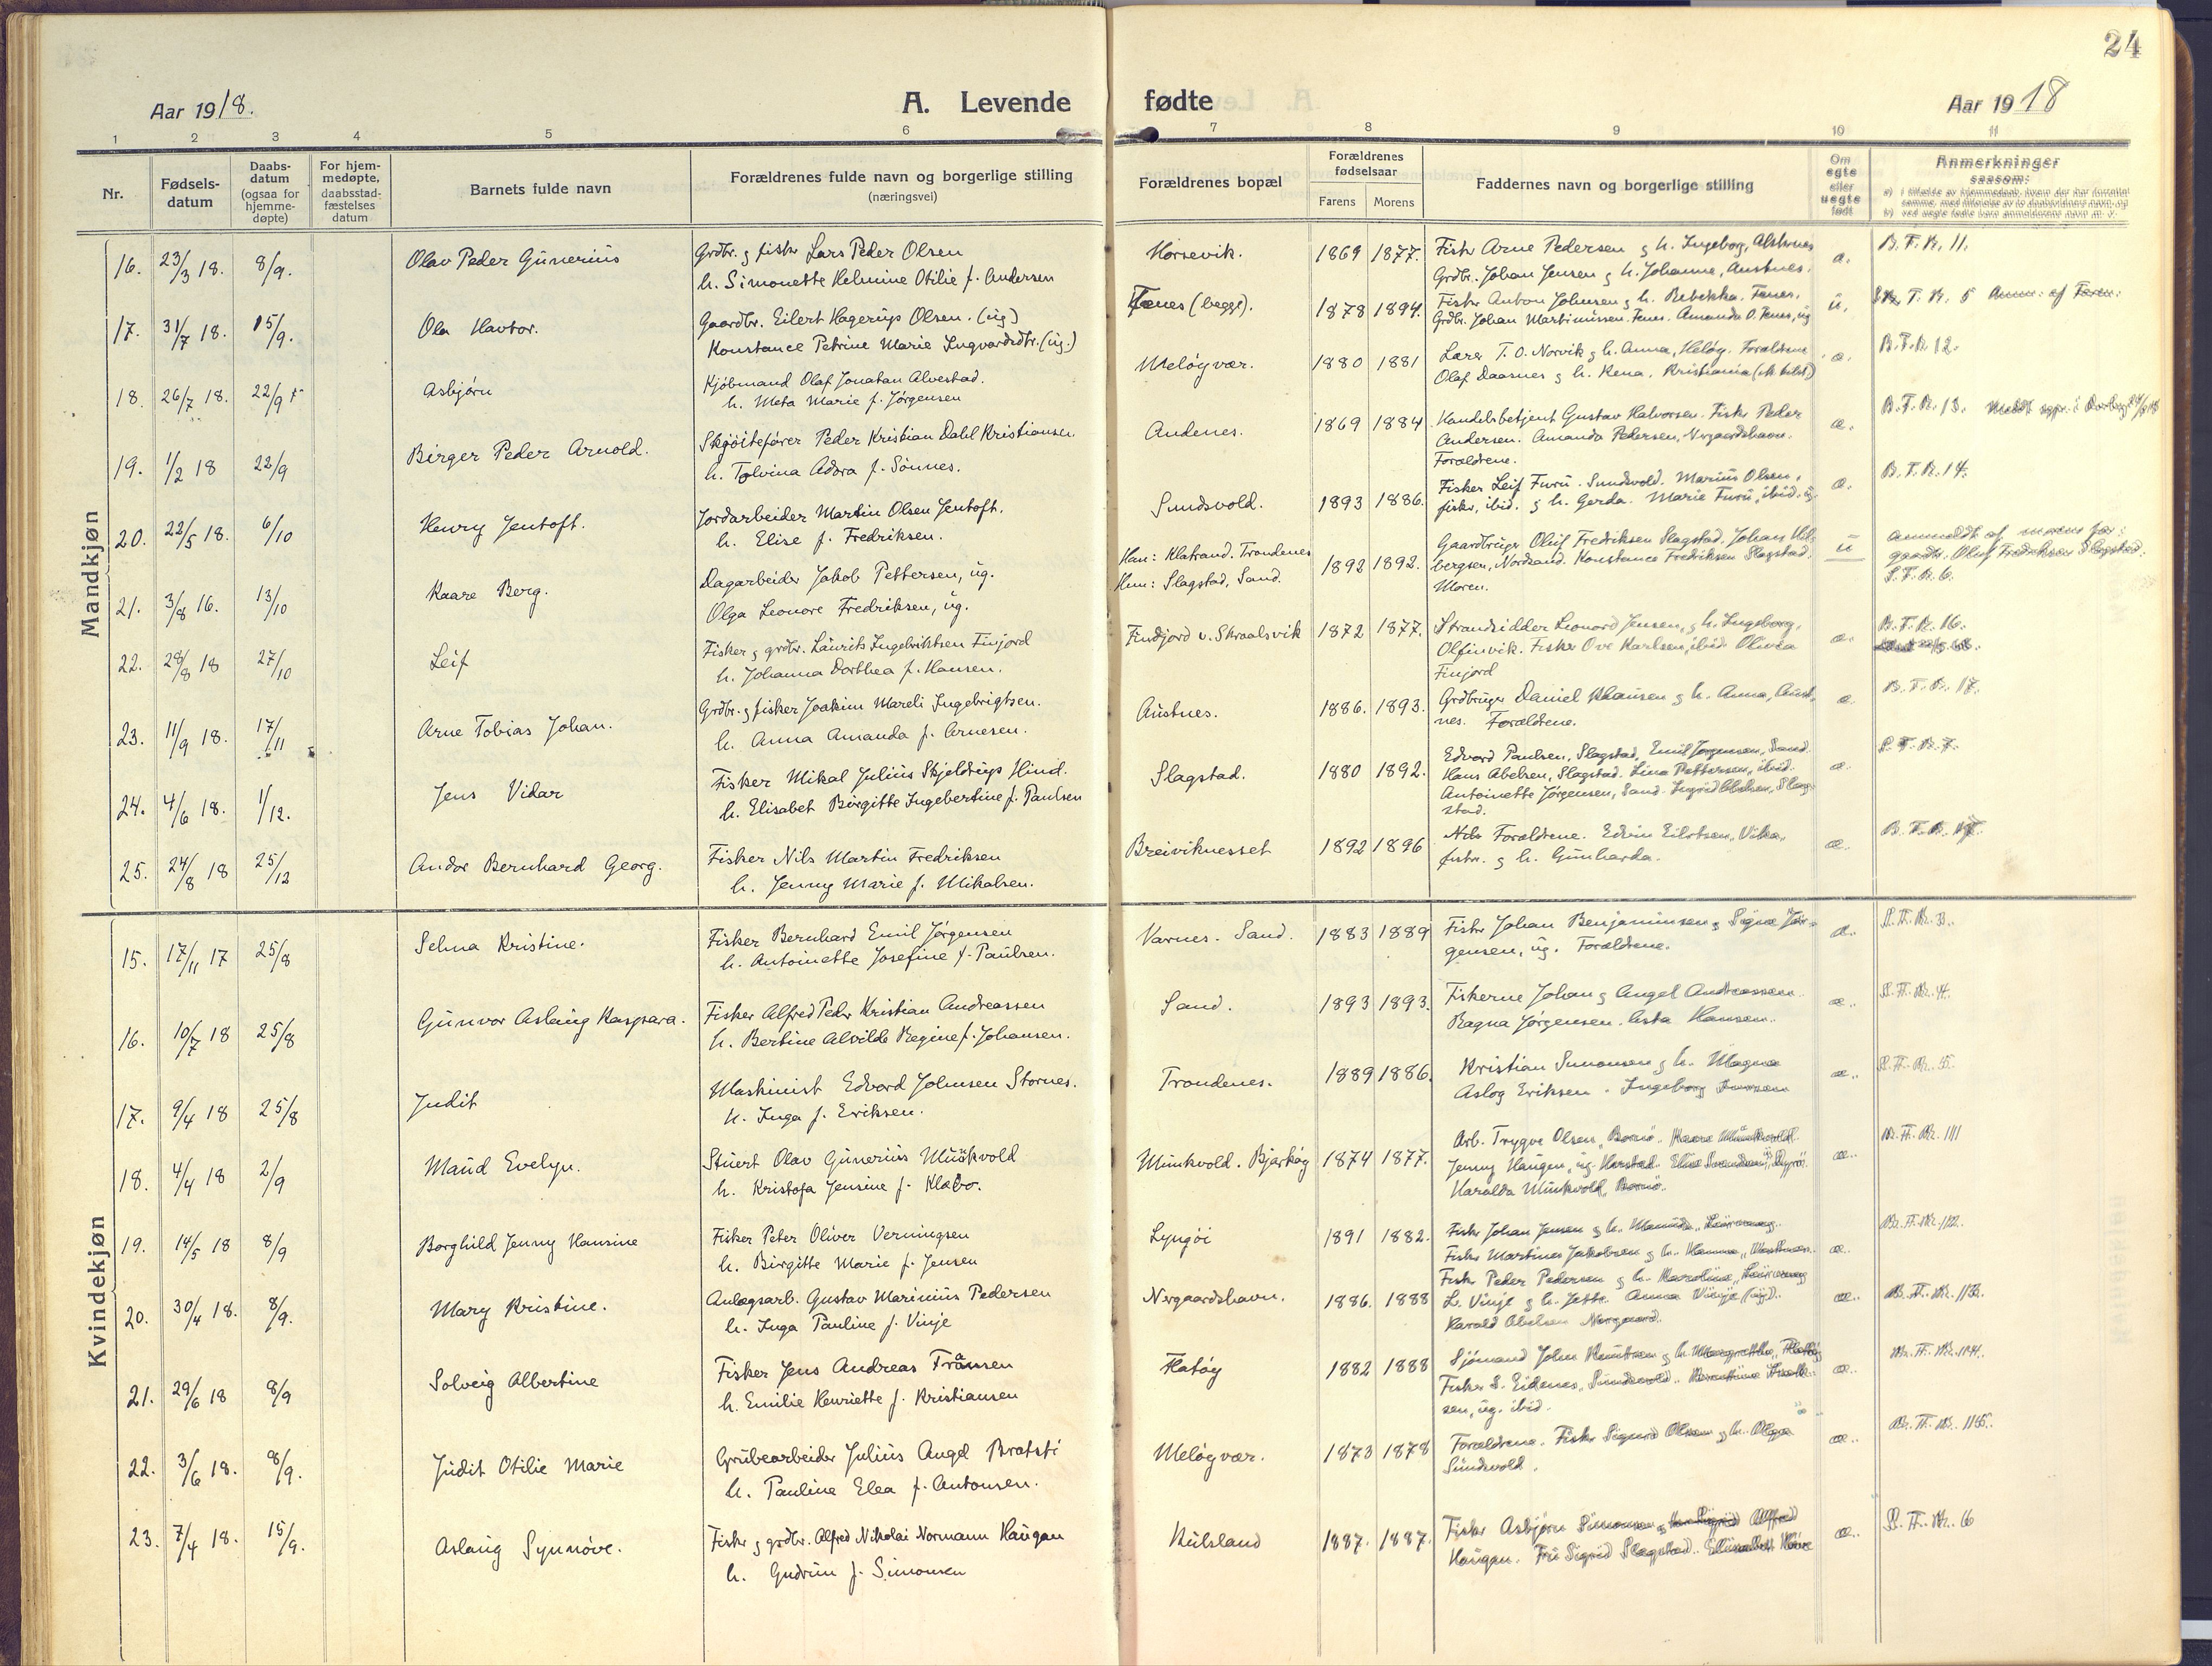 24
Aar 1918.
A. Levende fødte
Aar 1918
1 2 3 4 5 6 7 8 9 10 11
Nr.
Fødsels-
datum
Daabs-
datum
(ogsaa for
hjemme-
døpte)
For hjem-
medøpte,
daabsstad-
fæstelses
datum
Barnets fulde navn
Forældrenes fulde navn og borgerlige stilling
(næringsvei)
Forældrenes bopæl
Forældrenes
fødselsaar
Farens Morens
Faddernes navn og borgerlige stilling
Om
egte
eller
uegte
født
Anmerkninger
saasom:
Mandkjøn
16. 23/3 18. 8/9. Olav Peder Gunerius
Grdbr. & fisker Lars Peder Olsen
h. Simonette Helmine Otilie f. Andersen
Horsevik. 1869 1877.
Fisker Arne Pedersen & h. Ingeborg,
Grdbr. Johan Jensen & h. Johanne, Austnes.
æ. B.T.R. 11.
17. 31/7 18. 15/9. Ola Havtor.
Gaardbr. Eilert Hagerups Olsen. (ug)
Konstance Petrine Marie Ingvardsdtr. (ug.)
Fænes (begge). 1878 1894.
Fisker Anton Johnsen & h. Rebekka. Fenes.
Grdbr. Johan Martinussen. Fenes. Amanda O. Fenes, ug
u. T. R. 5
18. 26/7 18. 22/9 Asbjørn
Kjøbmand Olaf Jonatan Alvestad.
h. Meta Marie f. Jørgensen
Meløyvær. 1880 1881
Lærer T. O. Norvik & h. Anna, Meløy. Forældrene
Olaf Daasnes & h. Rena. Kristiania
æ. B.T.R. 12.
19. 1/2 18 22/9 Birger Peder Arnold.
Skjøitefører Peder Kristian Dahl Kristiansen
h. Tolvina Adora f. Sønnes.
Andenes. 1869 1884
Handelsbetjent Gustav Halvorsen. Fisker Peder
Andersen. Amanda Pedersen, Nergaardshavn.
Forældrene.
æ. B.T.R. 13.
20. 22/5 18. 6/10 Henry Jentoft.
Jordarbeider Martin Olsen Jentoft.
h. Elise f. Fredriksen.
Sundsvold. 1893 1886.
Fisker Leif Furu. Sundsvold. Marius Olsen,
fisker, ibid. & h. Gerda. Marie Furu, ibid. ug
æ. B.T.R. 14.
21. 3/8 16. 13/10 Kaare Berg.
Dagarbeider Jakob Pettersen, ug.
Olga Leonore Fredriksen, ug.
Han: Klatrand. Trondenes
Hun: Slagstad, Sand. 1892 1892.
Gaardbruger Oluf Fredriksen Slagstad. Johan Hil-
bergsen, Nordsand. Konstance Fredriksen Slagstad.
Moren.
u anmeldt af morens far:
gaardbr. Oluf Fredriksen Slagstad.
S.T.R. 6.
22. 28/8 18 27/10 Leif
Fisker & grdbr. Laurits Ingebriktsen Finjord
h. Johanna Dorthea f. Hansen.
Findjord v. Straalsvik 1872 1877.
Strandsidder Leonard Jensen, & h. Ingeborg,
Olfinvik. Fisker Ove Karlsen, ibid. Olivia
Finjord
æ. B.T.R. 16.
23. 11/9 18. 17/11 Arne Tobias Johan.
Grdbr. & fisker Joakim Mareli Ingebrigtsen.
h. Anna Amanda f. Arnesen.
Austnes. 1886. 1893.
Grdbruger Daniel Klausen & h. Anna, Aust-
nes. Forældrene.
æ. B.T.R. 17.
24. 4/6 18. 1/12. Jens Vidar
Fisker Mikal Julius Skjeldrups Hind.
h. Elisabet Birgitte Ingebertine f. Paulsen
Slagstad. 1880 1892.
Edvard Paulsen, Slagstad, Emil Jørgensen, Sand.
Hans Abelsen, Slagstad. Lina Pettersen, ibid.
Antoinette Jørgensen, Sand. Ingrid Abelsen, Slag-
stad.
æ. S.T.R. 7.
25. 24/8 18 25/12 Andor Bernhard Georg.
Fisker Nils Martin Fredriksen
h. Jenny Marie f. Mikalsen.
Breiviknesset 1892 1896
Forældrene. Edvin Eilertsen, Vika,
fisker. & h. Gunharda.
æ. B.T.R.
Kvindekjøn
15. 17/11 17 25/8 Selma Kristine.
Fisker Bernhard Emil Jørgensen
h. Antoinette Josefine f. Paulsen.
Varnes. Sand. 1883 1889
Fisker Johan Benjaminsen & Signe Jør-
gensen, ug. Forældrene.
æ. S.T.R. 3.
16. 10/7 18 25/8 Gunvor Aslaug Kaspara.
Fisker Alfred Peder Kristian Andreassen
h. Bertine Alvilde Regine f. Johansen.
Sand. 1893 1893.
Fiskerne Johan & Angel Andreassen.
Ragna Jørgensen. Asta Hansen.
æ. S.T.R. 4.
17. 9/4 18 25/8 Judit
Maskinist Edvard Johnsen Stornes.
h. Inga f. Eriksen.
Trondenes. 1889 1886.
Kristian Simonsen & h. Magna
Aslog Eriksen. Ingeborg
æ. S.T.R. 5.
18. 4/4 18 2/9 Maud Evelyn.
Stuert Olav Gunerius Munkvold
h. Kristofa Jensine f. Klæbo.
Munkvold. Bjarkøy 1874 1877.
Arb. Trygve Olsen,
Jenny Haugen, ug. Harstad.
Haralda Munkvold,
æ. B.T.R. 11
19. 14/5 18 8/9 Borghild Jenny Hansine
Fisker Peter Oliver Verningsen
h. Birgitte Marie f. Jensen
Lyngøi 1891 1882.
Fisker Johan Jensen & h.
Fisker Martines Jakobsen & h.
Fisker Peder Pedersen & h. Karoline,
æ. B.T.R. 12.
20. 30/4 18. 8/9. Mary Kristine.
Anlægsarb. Gustav Marinius Pedersen
h. Inga Pauline f. Vinje
Nergaardshavn. 1886. 1888
L. Vinje & h. Jette. Anna Vinje (ug).
Harald Abelsen Nergaard.
æ. B.T.R. 13.
21. 29/6 18 8/9 Solveig Albertine
Fisker Jens Andreas Fransen
h. Emilie Henriette f. Kristiansen
Flatøy 1882 1888
Sjømand John Knutsen & h.
Fisker S. Eidenes, Sundsvold.
sen, ug. ibid.
æ. B.T.R. 14.
22. 3/6 18. 8/9. Judit Otilie Marie
Grubearbeider Julius Angel Bratsti
h. Pauline Elea f. Antonsen.
Meløyvær. 1873 1878
Forældrene. Fisker Sigurd Olsen & h. Olga
Sundsvold.
æ. B.T.R. 15.
23. 7/4 18. 15/9. Aslaug Synnøve.
Fisker & grdbr. Alfred Nikolai Normann Haugan
h. Gudrun f. Simonsen
Kulsland 1887. 1887.
Fisker Asbjørn Simonsen Alfred
Haugan. Fru Sigrid Slagstad.
æ. S.T.R. 6